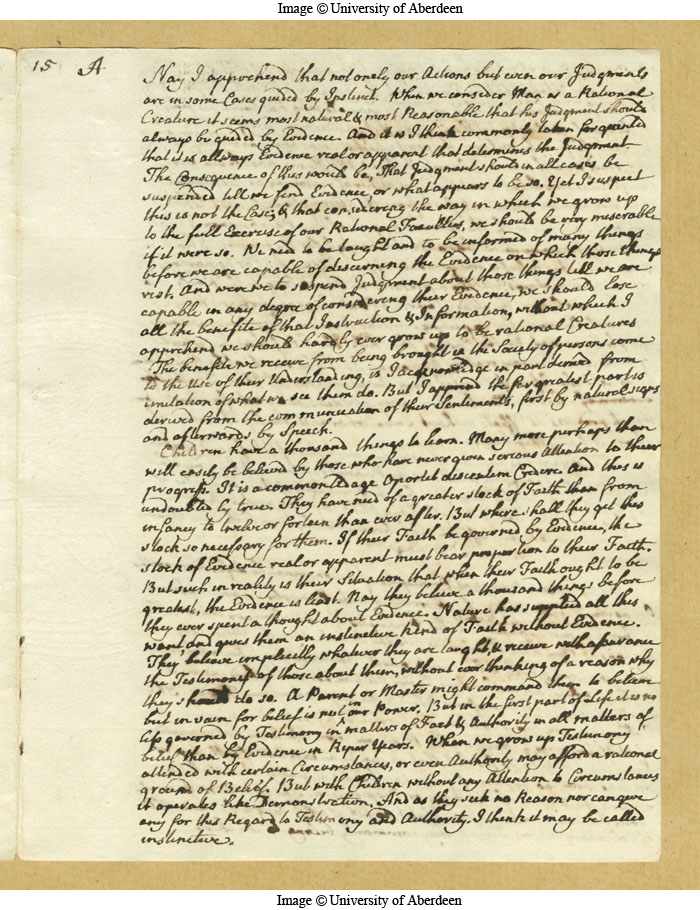 Image © University of Aberdeen
15 A
Nay I apprehend that not onely our Actions but even our Judgments
are in some Cases guided by Instinct. When we consider Man as a Rational
Creature it seems most natural & most Reasonable that his Judgment should
always be guided by Evidence. And it is I think commonly taken for granted
that it is allways Evidence real or apparent that determines the Judgment.
The Consequence of this would be, That Judgment should in all cases be
suspended till we find Evidence, or what appears to be so. Yet I suspect
this is not the Case, & that considering the way in which we grow up
to the full Exercise of our Rational Faculties, we should be very miserable
if it were so. We need to be taught and to be informed of many things
before we are capable of discerning the Evidence on which those things
rest. And were we to suspend Judgment about those things till we are
capable in any degree of considering their Evidence, we should lose
all the benefite of that Instruction & Information, without which I
apprehend we should hardly ever grow up to be rational Creatures
The benefite we receive from being brought up in the Society of persons come
to the Use of their Understanding, is I acknowledge in part derived from
imitation of what we see them do. But I apprehend the far greatest part is
derived from the communication of their Sentiments, first by natural signs
and afterwards by Speech.
Children have a thousand things to learn. Many more perhaps than
will easily be believed by those who have never given serious Attention to their
progress. It is a common Adage Oportet discentem Credere And this is
undoubtedly true. They have need of a greater stock of Faith from
infancy to twelve or forteen than ever after. But where shall they get this
stock so necessary for them. If their Faith be governed by Evidence, the
stock of Evidence real or apparent must bear proportion to their Faith.
But such in reality is their Situation that when their Faith ought to be
greatest, the Evidence is least. Nay they believe a thousand things before
they ever spent a thought about Evidence. Nature has supplied all this
want, and gives them an instinctive kind of Faith without Evidence.
They believe implicitly whatever they are taught, & receive with assurance
the Testimony of those about them, without ever thinking of a reason why
they should do so. A Parent or Master might command them to believe
but in vain for belief is not in our Power. But in the first part of Life it is no
less governed by Testimony in matters of Fact & Authority in all matters of
belief than by Evidence in Riper Years. When we grow up Testimony
attended with certain Circumstances, or even Authority may afford a rational
ground of Belief. But with Children without any Attention to Circumstances
it operates like Demonstration. And as they seek no Reason nor can give
any for this Regard to Testimony and Authority. I think it may be called
instinctive.
Image © University of Aberdeen